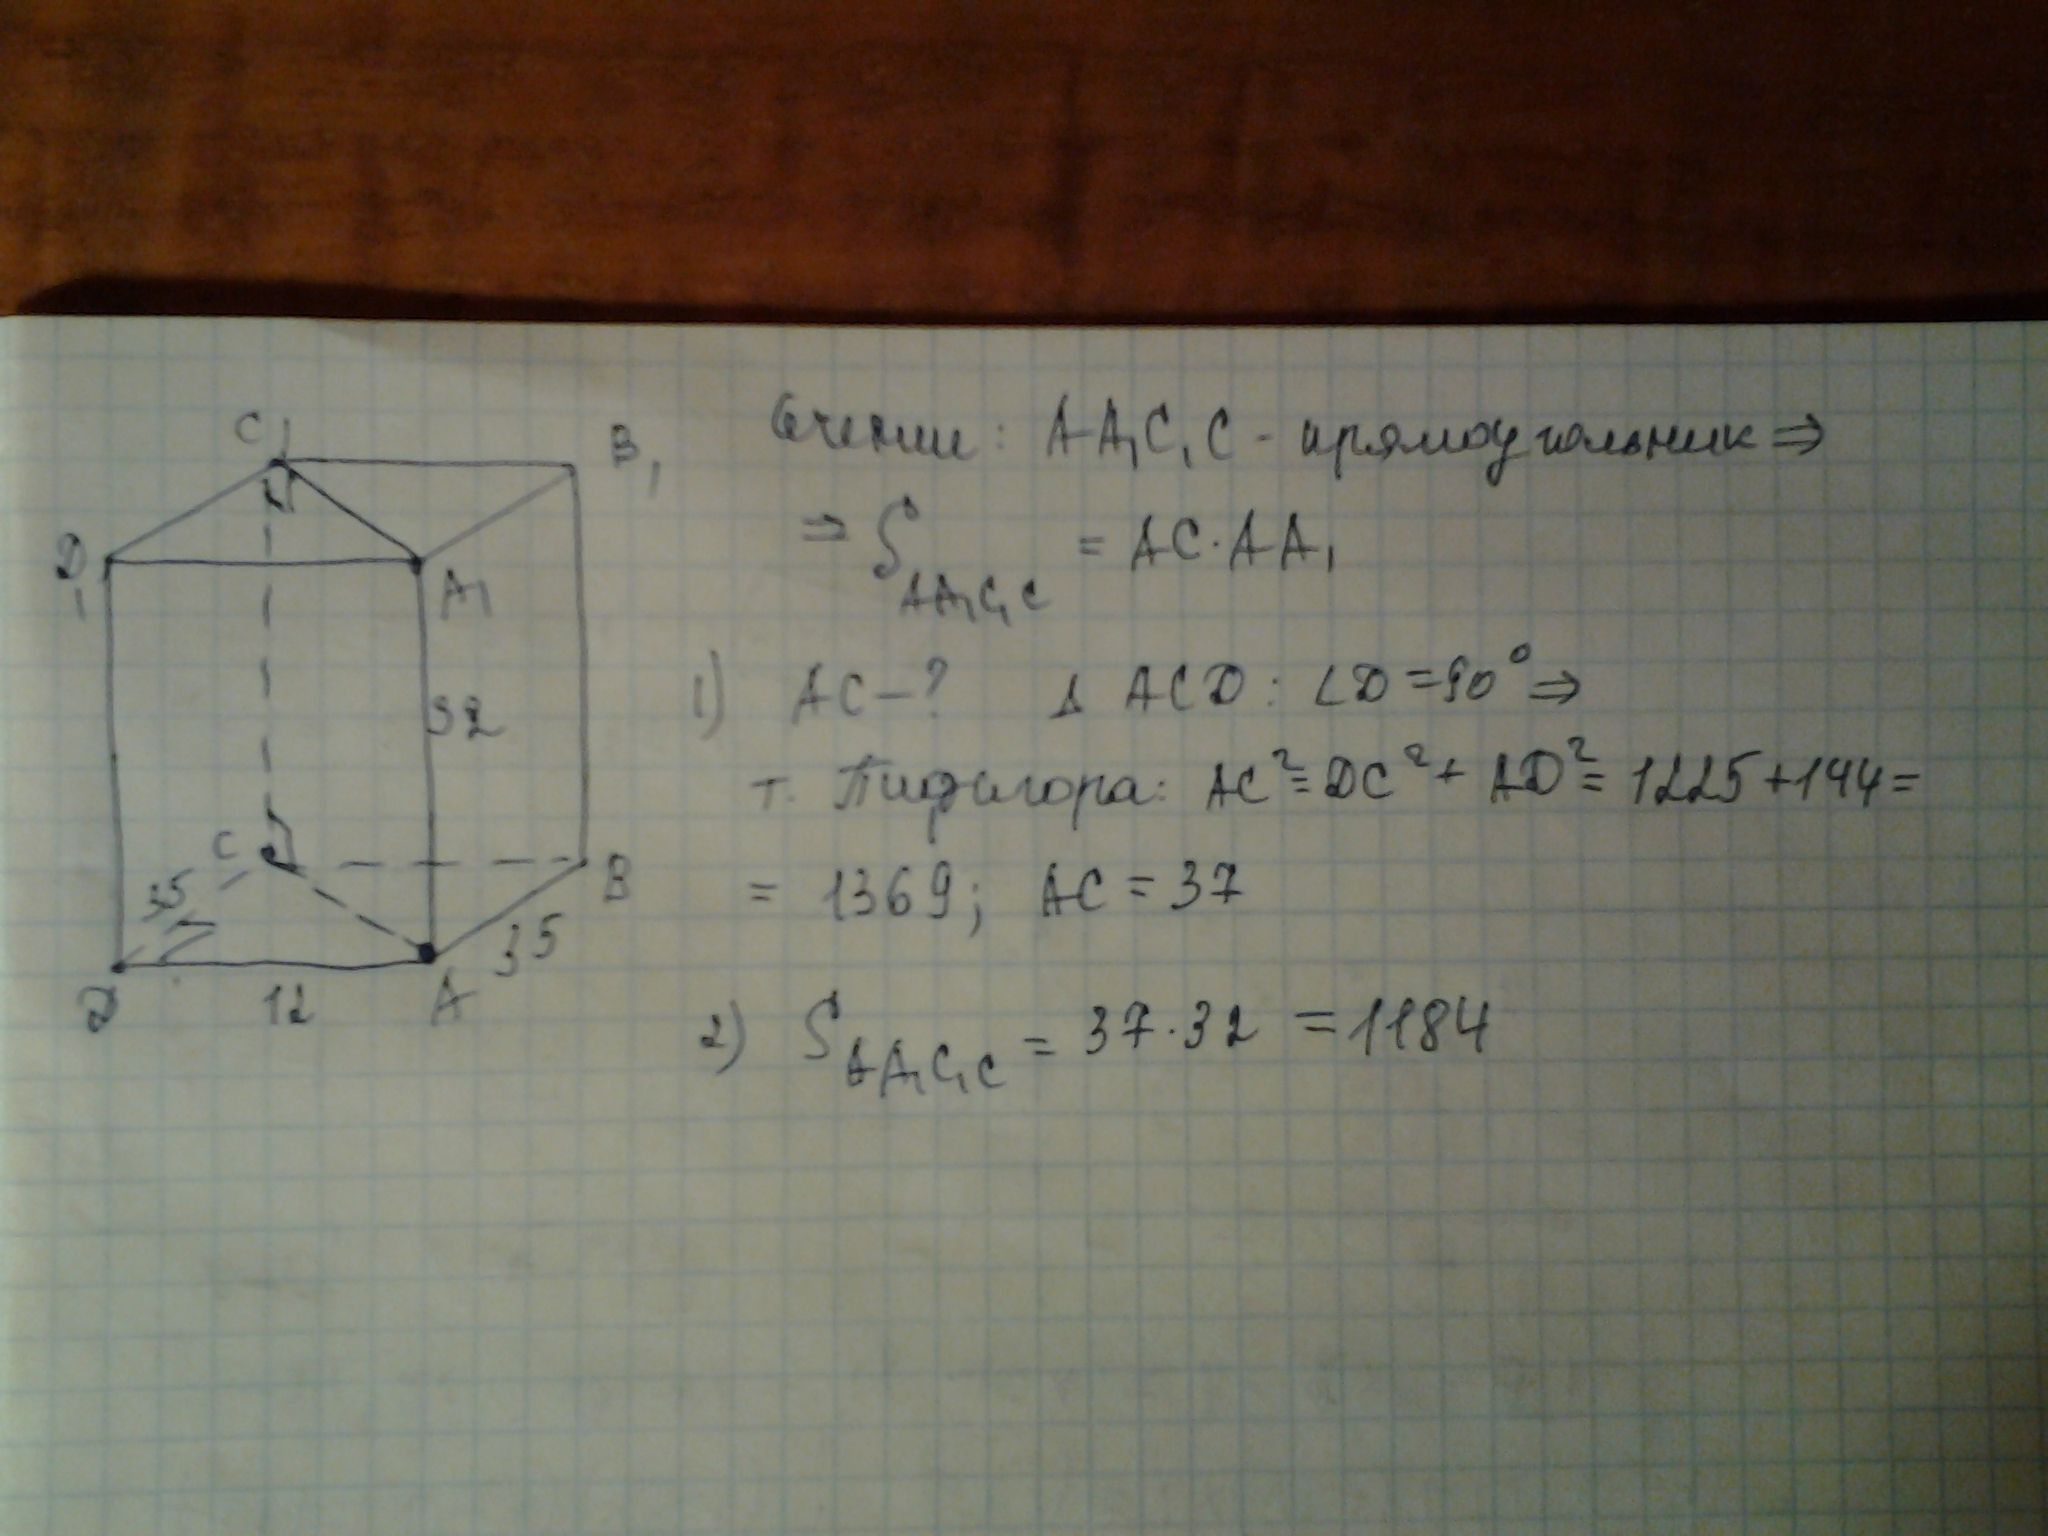 C₁
B₁
D₁
A₁
32
C
B
35
35
D
12
A
Сечение: AA₁C₁C - прямоугольник ⇒
⇒ S_AA₁C₁C = AC·AA₁
1) AC-? Δ ACD: ∠D=90° ⇒
т. Пифагора: AC²=DC²+AD²=1225+144=
= 1369; AC=37
2) S_AA₁C₁C = 37·32 = 1184